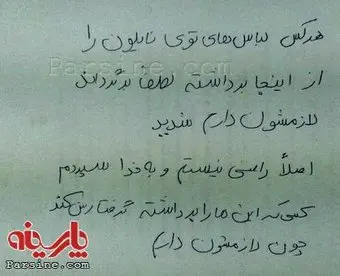 هرکس لباس‌های توی نایلون را
از اینجا برداشته لطفا برگرداند
لازمشون دارم شدید
اصلاً راضی نیستم و به خدا سپردم
کسی که این ها را برداشته گرفتارش کند
چون لازمشون دارم
پارسینه
Parsine.com
Parsine.com